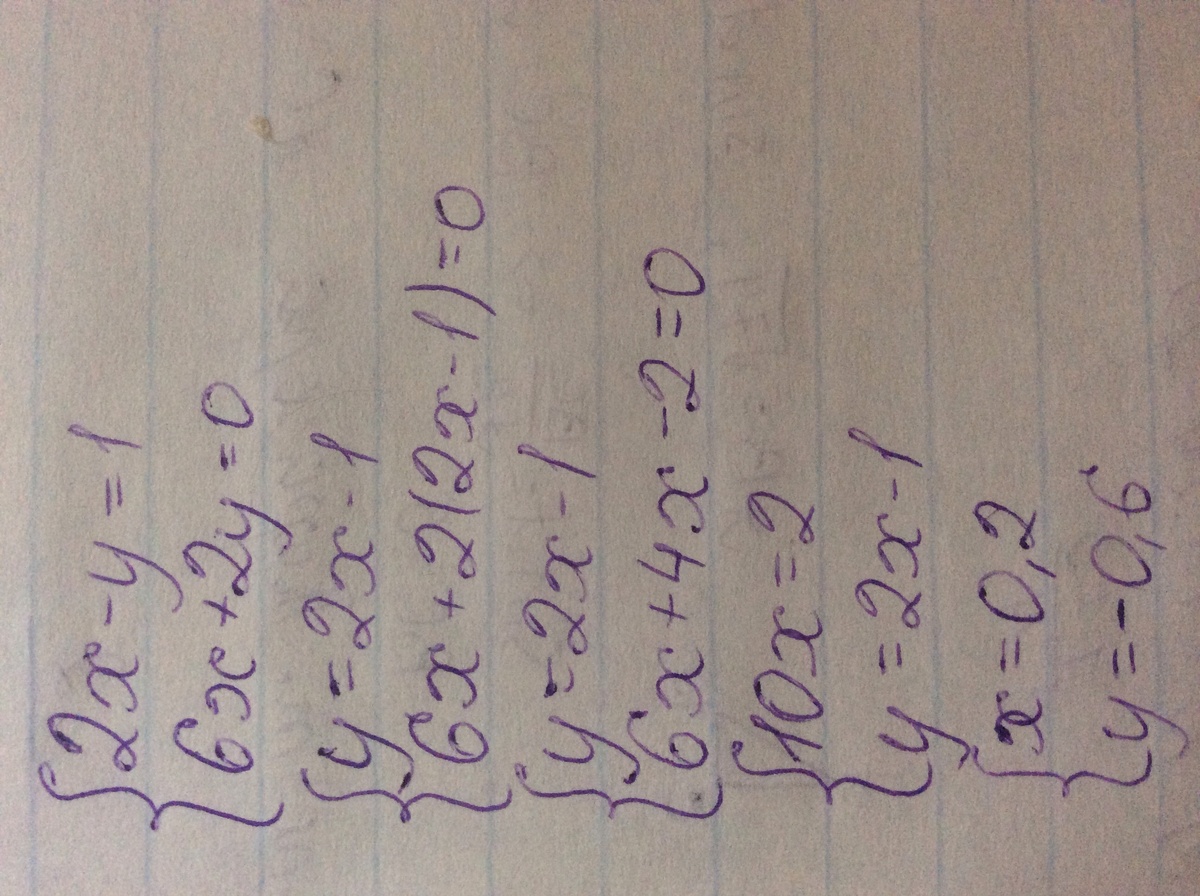 2x-y=1
6x+2y=0
y=2x-1
6x+2(2x-1)=0
y=2x-1
6x+4x-2=0
10x=2
y=2x-1
x=0,2
y=-0,6